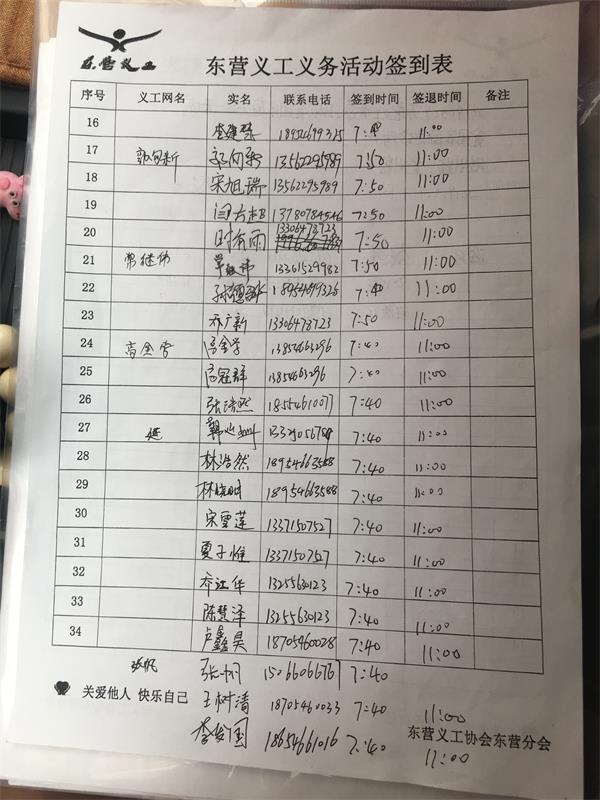 东营义工
东营义工义务活动签到表
序号 义工网名 实名 联系电话 签到时间 签退时间 备注
16 7:40 11:00
17 郭向新 郭向新 13562295989 7:50 11:00
18 宋旭瑞 13562295989 7:50 11:00
19 13780784546 7:50 11:00
20 时有雨 13306478723 7:50 11:00
21 常继伟 常继伟 13361529982 7:50 11:00
22 18954699326 7:40 11:00
23 乔广新 13306478723 7:50 11:00
24 高金学 高金学 13854663296 7:40 11:00
25 高冠群 13854663296 7:40 11:00
26 张浩然 18554610077 7:40 11:00
27 7:40 11:00
28 林浩然 18954663588 7:40 11:00
29 林晓明 18954663588 7:40 11:00
30 宋雪莲 13371507527 7:40 11:00
31 夏子惟 13371507527 7:40 11:00
32 乔江华 13255630123 7:40 11:00
33 陈慧泽 13255630123 7:40 11:00
34 卢鑫昊 18705460028 7:40 11:00
张帆 张帆 15066066767 7:40
关爱他人 快乐自己 王树清 18705460033 7:40 11:00
东营义工协会东营分会
李发国 18654661016 7:40 11:00